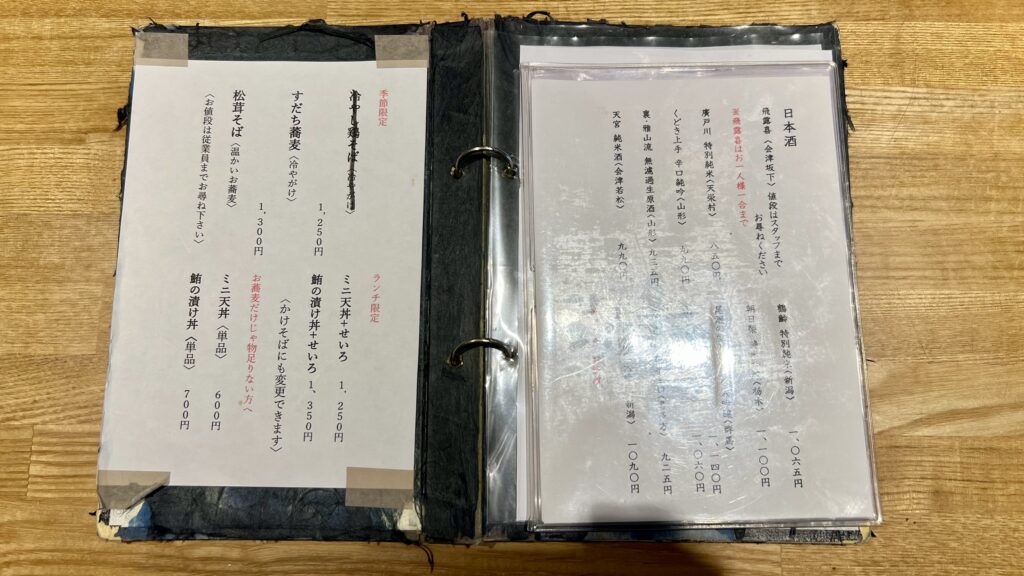 季節限定
冷やし鶏そば〈冷やがけ〉
すだち蕎麦〈冷やがけ〉
1,250円
松茸そば〈温かいお蕎麦〉
1,300円
〈お値段は従業員までお尋ね下さい〉
ランチ限定
ミニ天丼+せいろ 1,250円
鮪の漬け丼+せいろ 1,350円
〈かけそばにも変更できます〉
お蕎麦だけじゃ物足りない方へ
ミニ天丼〈単品〉 600円
鮪の漬け丼〈単品〉 700円
日本酒
飛露喜〈会津坂下〉値段はスタッフまで
お尋ねください
※飛露喜はお一人様一合まで
廣戸川 特別純米〈天栄村〉 八五〇円
くどき上手 辛口純吟〈山形〉 九九〇円
裏・雅山流 無濾過生原酒〈山形〉九三五円
天宮 純米酒〈会津若松〉 九九〇円
鶴齢 特別純米〈新潟〉 一、〇六五円
〈栃木〉 一、一〇〇円
一、一四〇円
一、〇六〇円
九二五円
新潟〉 一〇九〇円